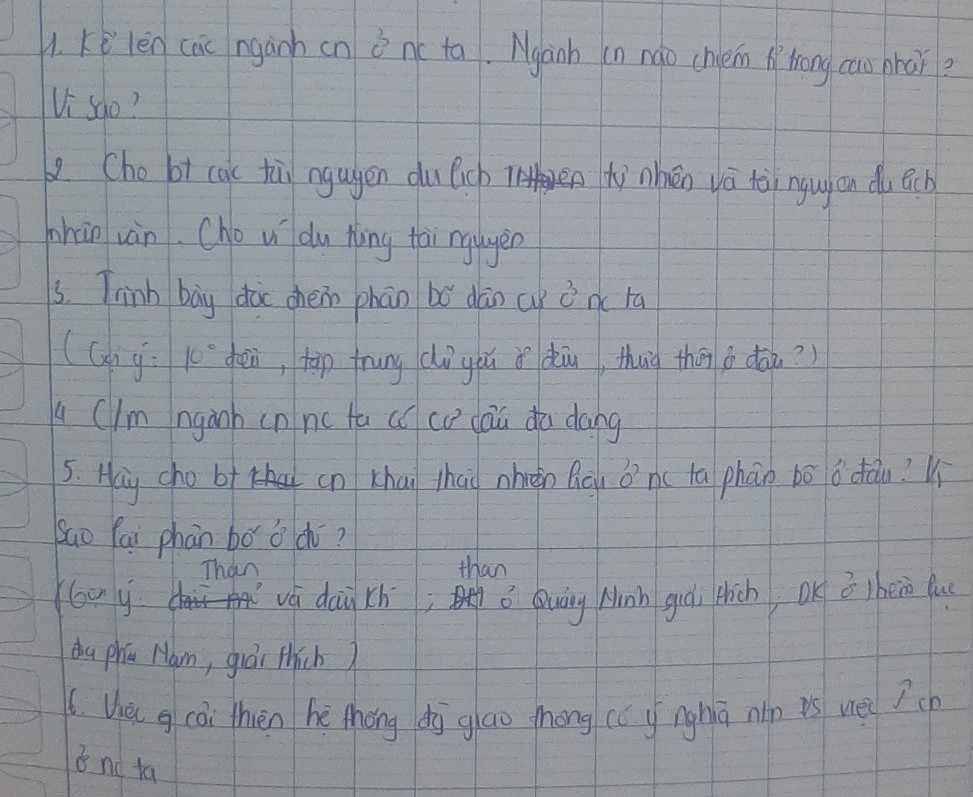 1. Kể tên các ngành cn ở nc ta. Ngành cn nào chiếm tỉ trọng cao nhất?
Vì sao?
2 Cho bt các tài nguyên du lịch tự nhiên và tài nguyên du lịch
nhân văn. Cho ví dụ từng tài nguyên
3. Trình bày đặc điểm phân bố dân cư ở nc ta
(Gợi ý: K° đều, tập trung chủ yếu ở đâu, thưa thớt ở đâu?)
4 C/m ngành cn nc ta có cơ cấu đa dạng
5. Hãy cho bt cn khai thác nhiên liệu ở nc ta phân bố ở đâu? Vì
sao lại phân bố ở đó?
(Gợi ý Than và dầu khí; than ở Quảng Ninh giải thích, DK ở thềm lục
địa phía Nam, giải thích)
6. Việc cải thiện hệ thống đg giao thông có ý nghĩa ntn vs việc ↑ cn
ở nc ta